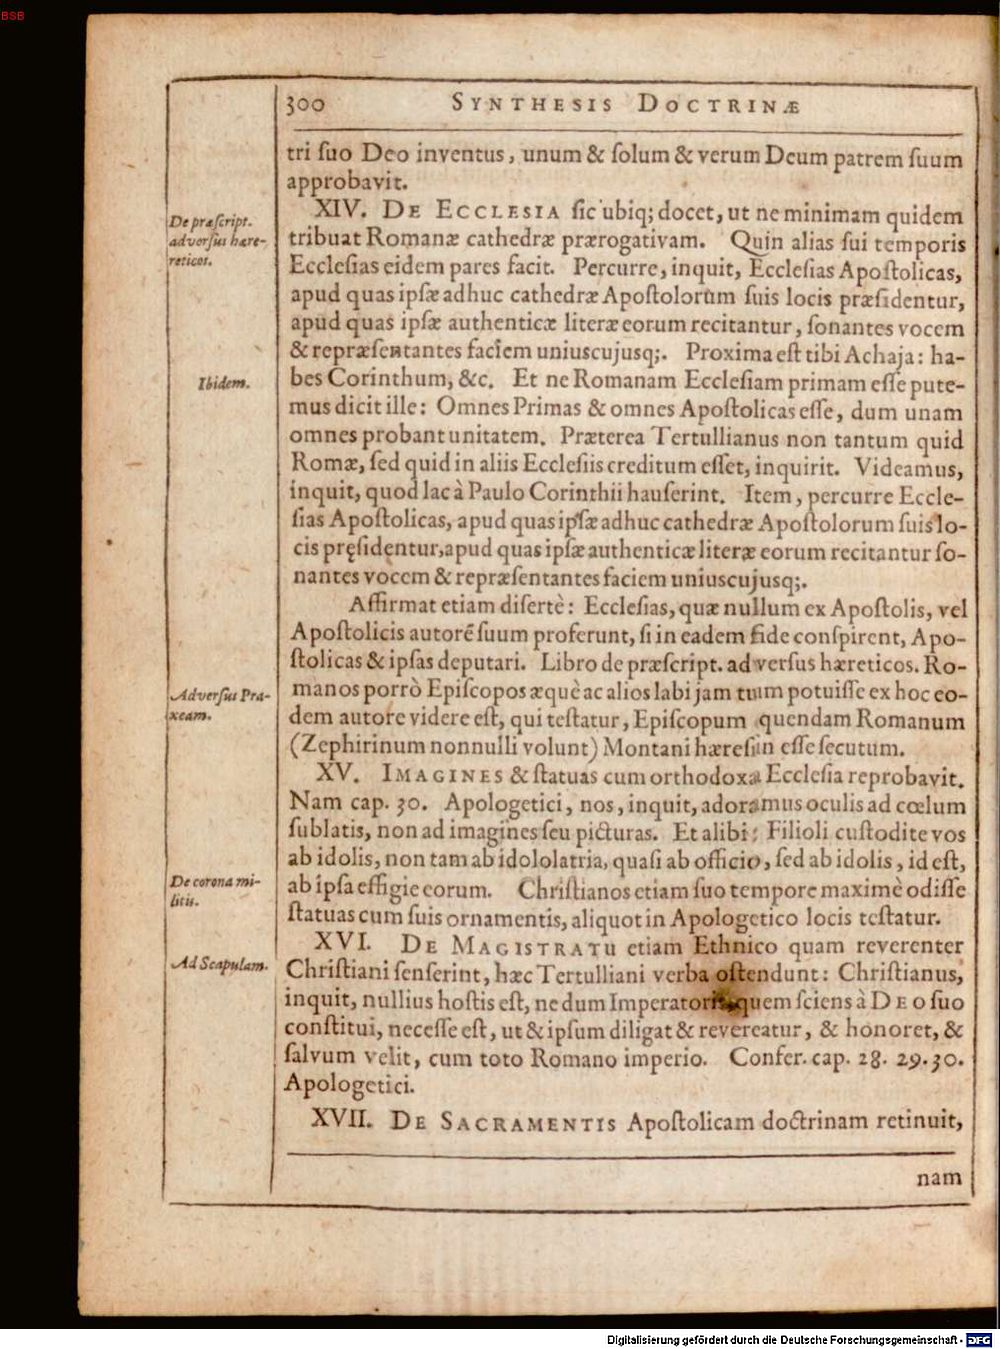 BSB
300 SYNTHESIS DOCTRINÆ
tri ſuo Deo inventus, unum & ſolum & verum Deum patrem ſuum
approbavit.
XIV. DE ECCLESIA ſic ubiq; docet, ut ne minimam quidem
De præſcript.
adverſus hære-
reticos.
tribuat Romanæ cathedræ prærogativam. Quin alias ſui temporis
Eccleſias eidem pares facit. Percurre, inquit, Eccleſias Apoſtolicas,
apud quas ipſæ adhuc cathedræ Apoſtolorum ſuis locis præſidentur,
apud quas ipſæ authenticæ literæ eorum recitantur, ſonantes vocem
& repræſentantes faciem uniuscujusq;. Proxima eſt tibi Achaja: ha-
Ibidem.
bes Corinthum, &c. Et ne Romanam Eccleſiam primam eſſe pute-
mus dicit ille: Omnes Primas & omnes Apoſtolicas eſſe, dum unam
omnes probant unitatem. Præterea Tertullianus non tantum quid
Romæ, ſed quid in aliis Eccleſiis creditum eſſet, inquirit. Videamus,
inquit, quod lac à Paulo Corinthii hauſerint. Item, percurre Eccle-
ſias Apoſtolicas, apud quas ipſæ adhuc cathedræ Apoſtolorum ſuis lo-
cis pręſidentur, apud quas ipſæ authenticæ literæ eorum recitantur ſo-
nantes vocem & repræſentantes faciem uniuscujusq;.
Affirmat etiam diſertè: Eccleſias, quæ nullum ex Apoſtolis, vel
Apoſtolicis autorẽ ſuum proferunt, ſi in eadem fide conſpirent, Apo-
ſtolicas & ipſas deputari. Libro de præſcript. adverſus hæreticos. Ro-
Adverſus Pra-
xeam.
manos porrò Epiſcopos æquè ac alios labi jam tum potuiſſe ex hoc eo-
dem autore videre eſt, qui teſtatur, Epiſcopum quendam Romanum
(Zephirinum nonnulli volunt) Montani hæreſin eſſe ſecutum.
XV. IMAGINES & ſtatuas cum orthodoxa Eccleſia reprobavit.
Nam cap. 30. Apologetici, nos, inquit, adoramus oculis ad cœlum
ſublatis, non ad imagines ſeu picturas. Et alibi: Filioli cuſtodite vos
ab idolis, non tam ab idololatria, quaſi ab officio, ſed ab idolis, id eſt,
De corona mi-
litis.
ab ipſa effigie eorum. Chriſtianos etiam ſuo tempore maximè odiſſe
ſtatuas cum ſuis ornamentis, aliquot in Apologetico locis teſtatur.
XVI. DE MAGISTRATU etiam Ethnico quam reverenter
Ad Scapulam.
Chriſtiani ſenſerint, hæc Tertulliani verba oſtendunt: Chriſtianus,
inquit, nullius hoſtis eſt, ne dum Imperatoris, quem ſciens à DEO ſuo
conſtitui, neceſſe eſt, ut & ipſum diligat & revereatur, & honoret, &
ſalvum velit, cum toto Romano imperio. Confer. cap. 28. 29. 30.
Apologetici.
XVII. DE SACRAMENTIS Apoſtolicam doctrinam retinuit,
nam
Digitalisierung gefördert durch die Deutsche Forschungsgemeinschaft - DFG